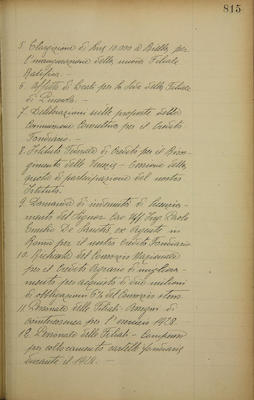 815
5. Elargizione di Lire 10.000 a Biella per
l'inaugurazione della nuova Filiale
Ratifica. —
6. Affitto di locali per la Sede della Filiale
di —
7. Deliberazioni sulle proposte della
Commissione Consultiva per il Credito
Fondiario. —
8. Istituto Federale di Credito per il Risor-
gimento delle Venezie - Cessione della
quota di partecipazione del nostro
Istituto.
9. Domanda di indennità di licenzia-
mento del Signor Cav. Uff. Paolo
Emilio De Sanctis ex Agente in
Roma per il nostro Credito Fondiario
10. Richiesta del Consorzio Nazionale
per il Credito Agrario di migliora-
mento per acquisto di due milioni
di obbligazioni 6% del Consorzio stesso
11. Personale delle Filiali - Assegni di
cointeressenza per l'esercizio 1928.
12. Personale delle Filiali - Compensi
per collocamento cartelle fondiarie
durante il 1928. —